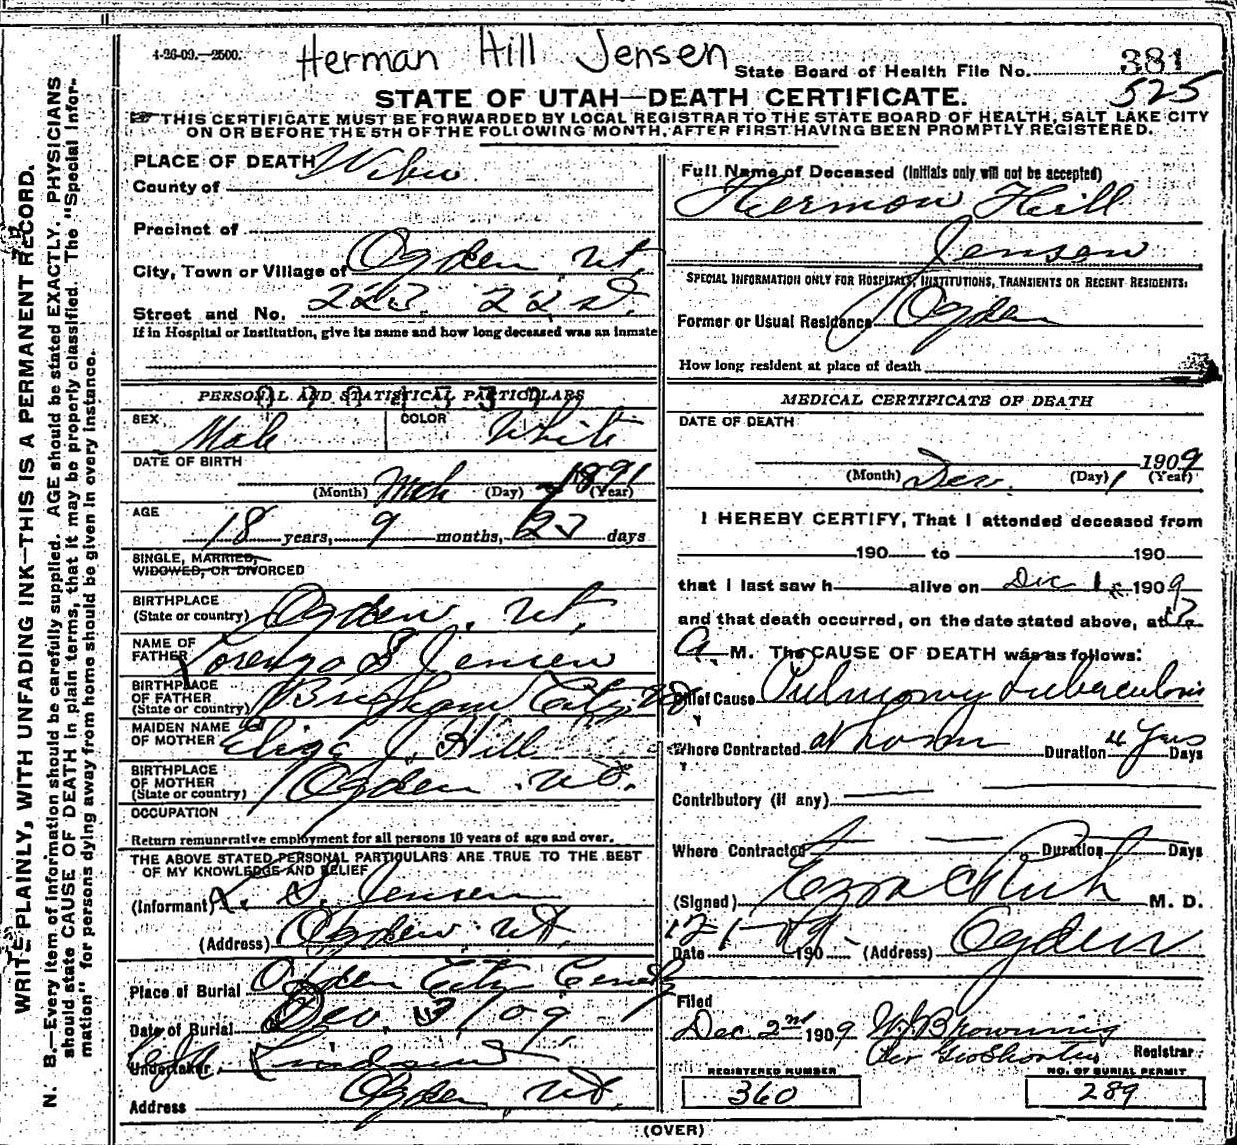 WRITE PLAINLY, WITH UNFADING INK—THIS IS A PERMANENT RECORD.
N. B.—Every item of information should be carefully supplied. AGE should be stated EXACTLY. PHYSICIANS
should state CAUSE OF DEATH in plain terms, that it may be properly classified. The "Special Infor-
mation" for persons dying away from home should be given in every instance.
4-26-09.—2500.
Herman Hill Jensen
State Board of Health File No. 381
525
STATE OF UTAH—DEATH CERTIFICATE.
THIS CERTIFICATE MUST BE FORWARDED BY LOCAL REGISTRAR TO THE STATE BOARD OF HEALTH, SALT LAKE CITY
ON OR BEFORE THE 5TH OF THE FOLLOWING MONTH, AFTER FIRST HAVING BEEN PROMPTLY REGISTERED.
PLACE OF DEATH
County of Weber
Precinct of
City, Town or Village of Ogden Ut.
Street and No. 223. 22 st.
If in Hospital or Institution, give its name and how long deceased was an inmate
PERSONAL AND STATISTICAL PARTICULARS
SEX Male COLOR White
DATE OF BIRTH
(Month) Mch (Day) 1891 (Year)
AGE
18 years, 9 months, 23 days
SINGLE, MARRIED,
WIDOWED, OR DIVORCED
BIRTHPLACE
(State or country) Ogden, Ut.
NAME OF
FATHER Lorenzo S Jensen
BIRTHPLACE
OF FATHER
(State or country) Brigham City, Ut
MAIDEN NAME
OF MOTHER Eliza J. Hill
BIRTHPLACE
OF MOTHER
(State or country) Ogden Ut.
OCCUPATION
Return remunerative employment for all persons 10 years of age and over.
THE ABOVE STATED PERSONAL PARTICULARS ARE TRUE TO THE BEST
OF MY KNOWLEDGE AND BELIEF
(Informant) L. S. Jensen
(Address) Ogden Ut.
Place of Burial Ogden City Cemety
Date of Burial Dec. 3/09
Undertaker
Address Ogden, Ut.
Full Name of Deceased (Initials only will not be accepted)
Hermon Hill
Jensen
SPECIAL INFORMATION ONLY FOR HOSPITALS, INSTITUTIONS, TRANSIENTS OR RECENT RESIDENTS:
Former or Usual Residence Ogden
How long resident at place of death
MEDICAL CERTIFICATE OF DEATH
DATE OF DEATH
1909
(Month) Dec. (Day) 1 (Year)
I HEREBY CERTIFY, That I attended deceased from
190 to 190
that I last saw h alive on Dec 1 1909
and that death occurred, on the date stated above, at 12
A. M. The CAUSE OF DEATH was as follows:
Chief Cause Pulmonry Tuberculosis
Where Contracted at home Duration 4 Years Days
Contributory (if any)
Where Contracted Duration Days
(Signed) Ezra C Rich M. D.
12-1-09
Date 190 (Address) Ogden
Filed
Dec. 2nd 1909 W J Browning
Per Geo Shorten Registrar
REGISTERED NUMBER
360
NO. OF BURIAL PERMIT
289
(OVER)